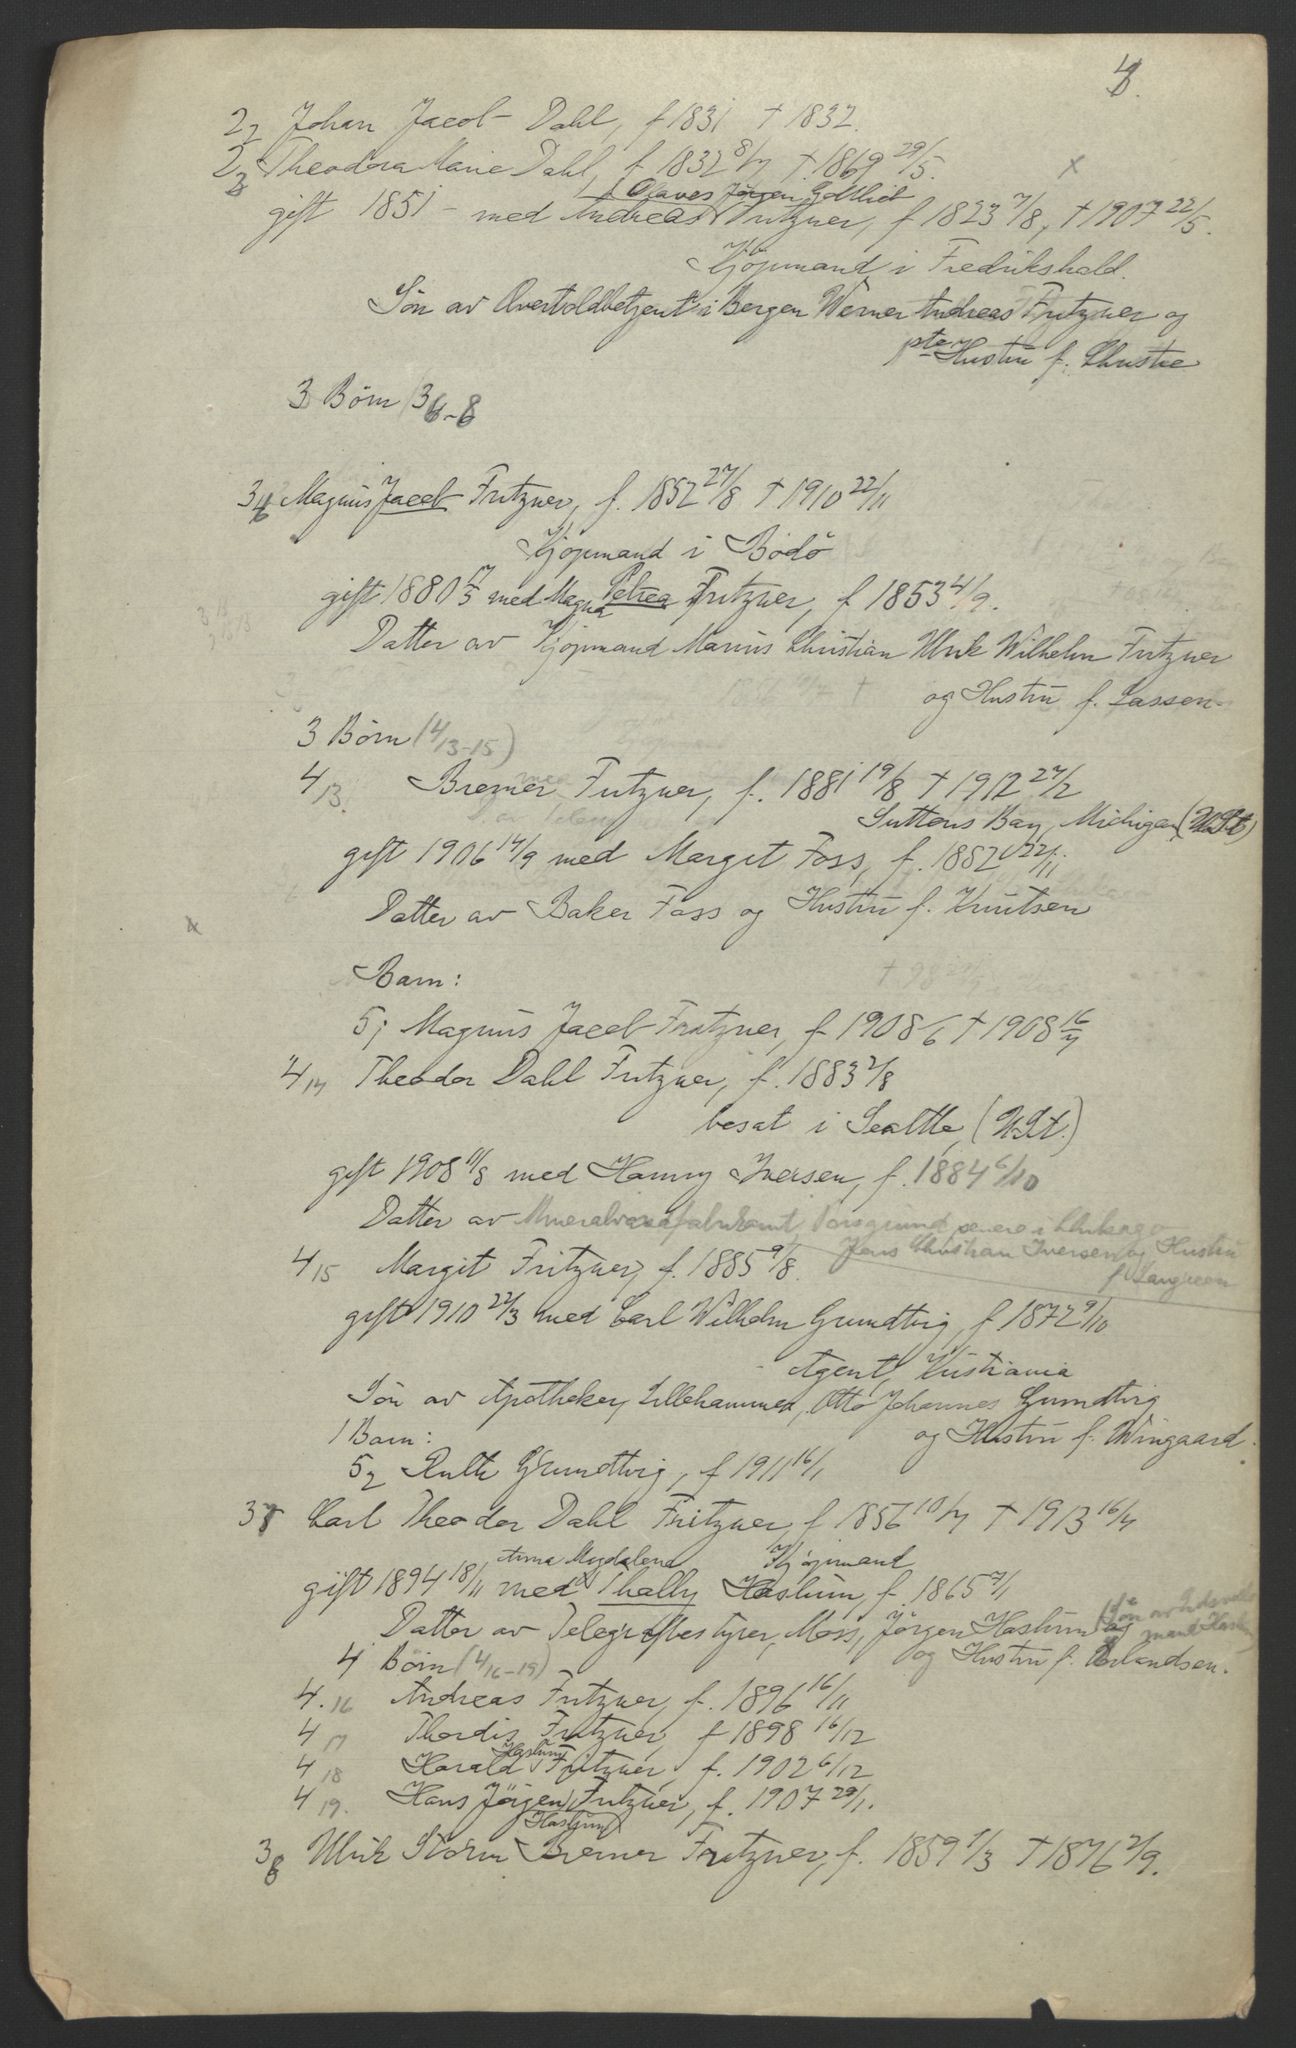 4.
2₂ Johan Jacob Dahl, f 1831 † 1832.
2₃ Theodora Marie Dahl, f 1832 8/7 † 1869 29/5. x
Olaves Jörgen Gottlieb
gift 1851 – med Andreas Fritzner, f 1823 7/8, † 1907 22/5.
Kjöpmand i Fredrikshald.
Sön av Overtoldbetjent i Bergen Werner Andreas Fritzner og
Hustru f. Christie
3 Börn (3 6-8
3₆ Magnus Jacob Fritzner, f. 1852 27/8 † 1910 22/11
Kjöpmand i Bodö
gift 1880 17/5 med Magna Petrea Fritzner, f 1853 4/9.
Datter av Kjöpmand Marius Christian Ulrik Wilhelm Fritzner
og Hustru f. Lassen.
3 Börn (4/13-15)
4 13. Bremer Fritzner, f. 1881 19/8 † 1912 27/2
Suttons Bay, Michigan (U.St)
gift 1906 14/9 med Margit Foss, f. 1882 22/11
Datter av Baker Foss og Hustru f. Knutsen
Barn:
5₁ Magnus Jacob Fritzner, f 1908 /6 † 1908 16/7
4 14 Theodor Dahl Fritzner, f. 1883 2/8
bosat i Seattle, (U.St.)
gift 1908 11/8 med Hanny Iversen, f. 1884 6/10
Datter av Mineralvandfabrikant, Porsgrund, senere i Chikago
Jens Christian Iversen og Hustru
4 15 Margit Fritzner, f. 1885 9/8.
f. Langreen
gift 1910 22/3 med Carl Wilhelm Grundtvig, f 1872 9/10
Agent, Kristiania
Sön av Apotheker, Lillehammer, Otto Johannes Grundtvig
1 Barn: og Hustru f. Wingaard.
5₂ Ruth Grundtvig, f 1911 16/1
3₇ Carl Theodor Dahl Fritzner, f 1856 10/7 † 1913 16/4
Anna Magdalena Kjöpmand
gift 1894 18/11 med Thally Haslum, f. 1865 7/1
Datter av Telegrafbestyrer, Moss, Jörgen Haslum (Sön av
4 Börn (4/16-19) og Hustru f. Erlandsen.
4. 16 Andreas Fritzner, f. 1896 16/11
4 17 Thordis Fritzner, f 1898 16/12
Haslum
4 18 Harald Fritzner, f. 1902 6/12
4 19. Hans Jörgen Fritzner, f. 1907 29/1.
Haslum
3₈ Ulrik Storm Bremer Fritzner, f. 1859 1/3 † 1876 2/9.